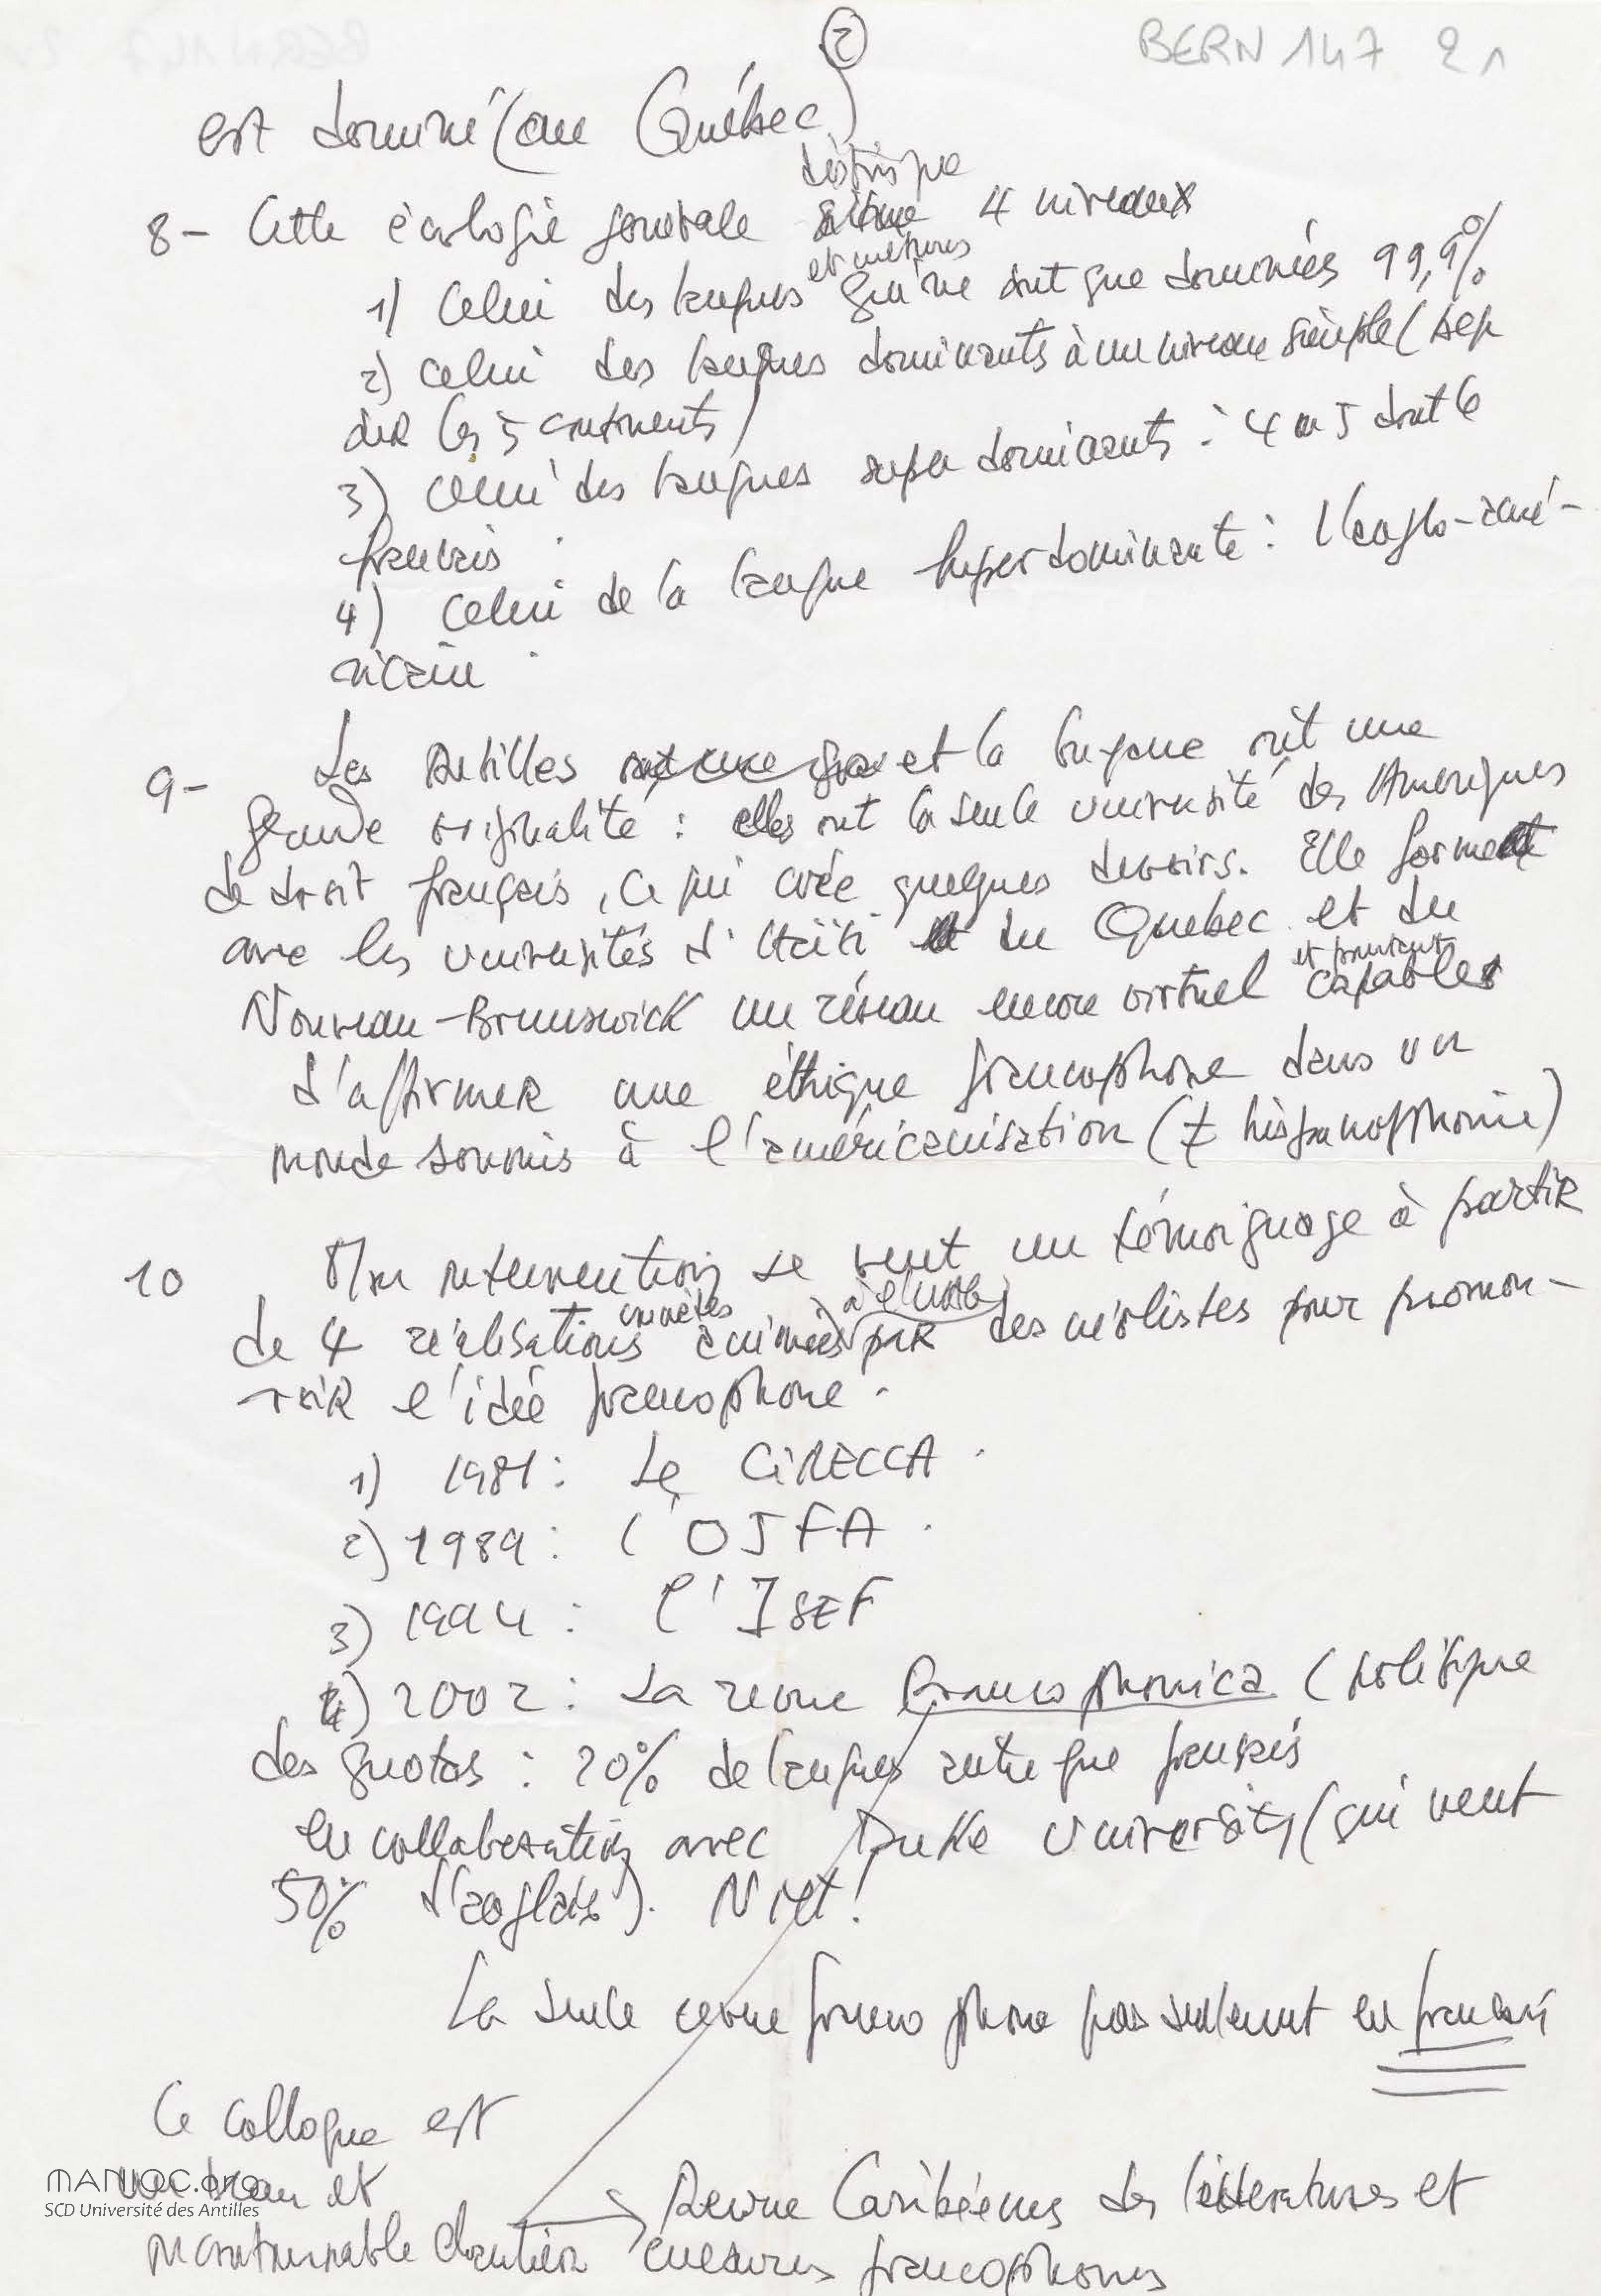 ②
BERN 147 21
est dominé (au Québec)
distingue
8 - Cette écologie générale situe 4 niveaux
et cultures
1) Celui des langues qui ne sont que dominées 99,9%
2) celui des langues dominantes à un niveau simple (sep
der les 5 continents)
3) celui des langues super dominants : 4 ou 5 dont le
français.
4) Celui de la langue hyperdominante : l'anglo-amé-
ricain.
9- Les Antilles et la Guyane ont une
grande originalité : elles ont la seule université des Amériques
de droit français, ce qui crée quelques devoirs. Elle forme
avec les universités d'Haïti du Québec et du
et pourtant
Nouveau-Brunswick un réseau encore virtuel capable
d'affirmer une éthique francophone dans un
monde soumis à l'américanisation (≠ hispanophonie)
10 Mon intervention se veut un témoignage à partir
concrètes à l'UAG
de 4 réalisations animées par des créolistes pour promou-
voir l'idée francophone.
1) 1981 : Le CIRECCA.
2) 1989 : l'OJFA.
3) 1994 : l'ISEF
4) 2002 : La revue Francophonica (politique
des quotas : 20% de langues autre que français
en collaboration avec Duke University (qui veut
50% d'anglais). Niet !
La seule revue francophone pas seulement en français
Ce colloque est
un beau et
incontournable chantier
Revue Caribéennes des littératures et
cultures francophones
MANIOC.org
SCD Université des Antilles